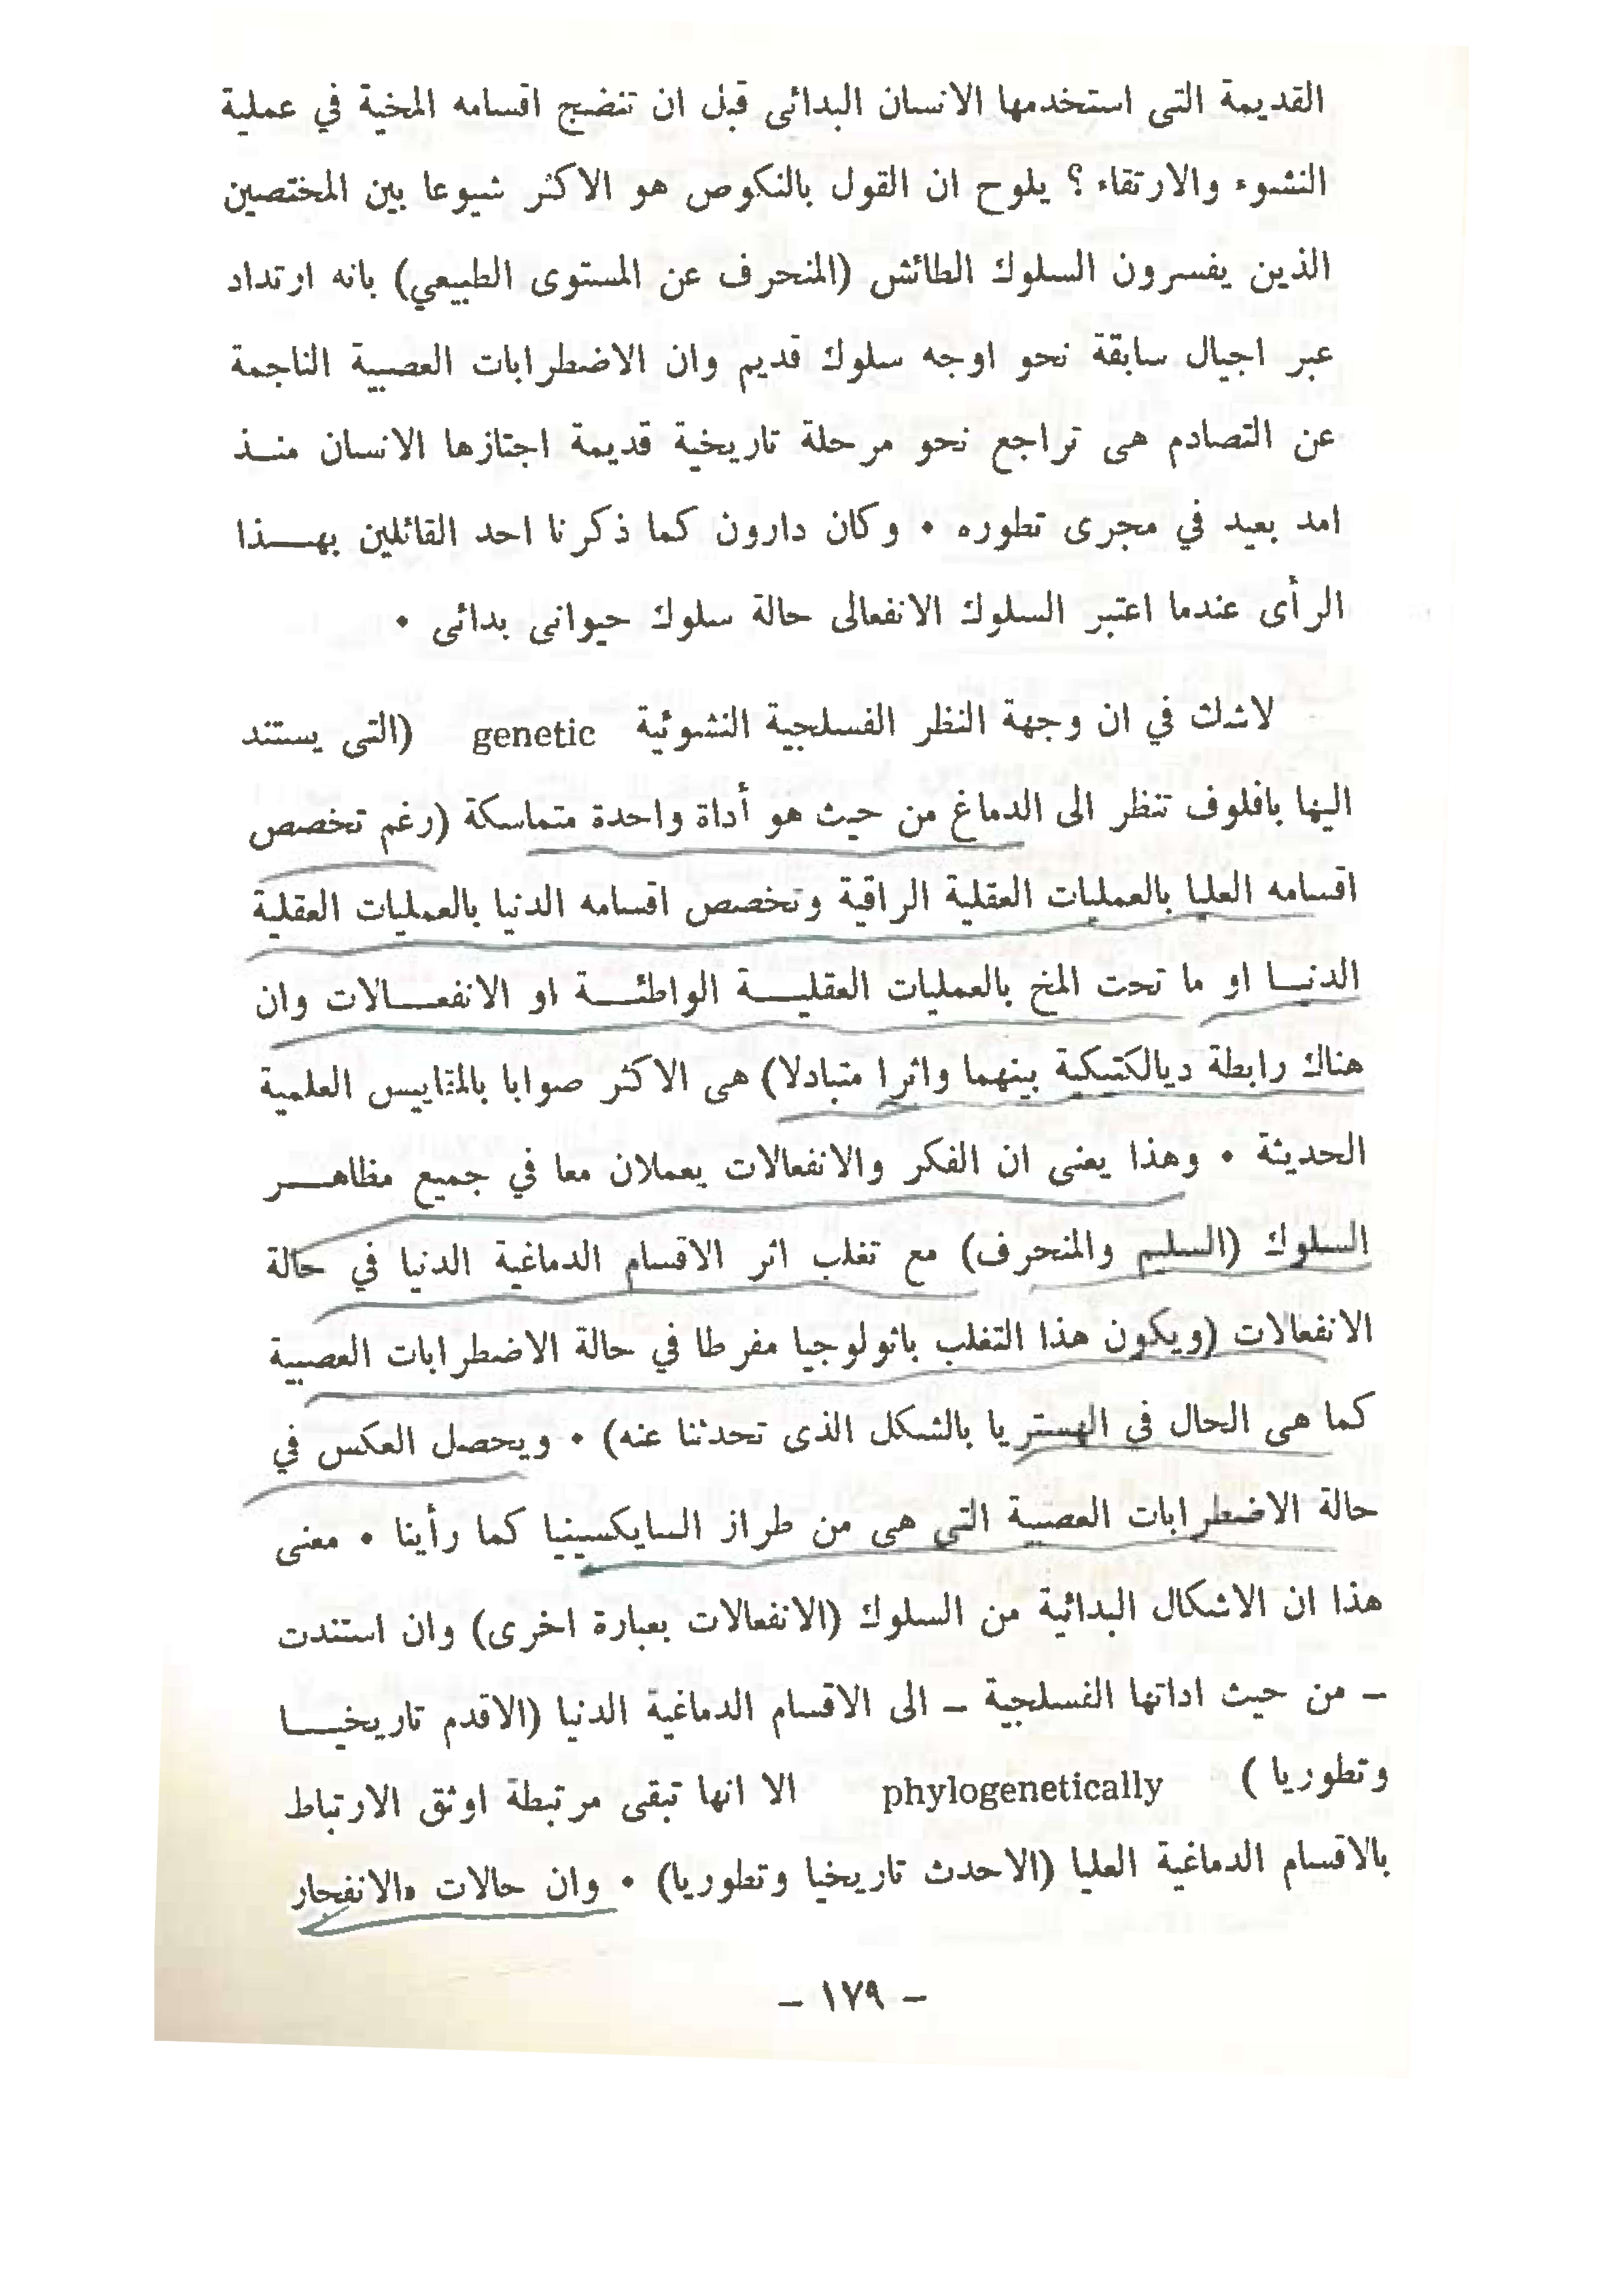 القديمة التى استخدمها الانسان البدائى قبل ان تنضج اقسامه المخية في عملية
النشوء والارتقاء ؟ يلوح ان القول بالنكوص هو الاكثر شيوعا بين المختصين
الذين يفسرون السلوك الطائش (المنحرف عن المستوى الطبيعي) بانه ارتداد
عبر اجيال سابقة نحو اوجه سلوك قديم وان الاضطرابات العصبية الناجمة
عن التصادم هى تراجع نحو مرحلة تاريخية قديمة اجتازها الانسان منــذ
امد بعيد في مجرى تطوره • وكان دارون كما ذكرنا احد القائلين بهــذا
الرأى عندما اعتبر السلوك الانفعالى حالة سلوك حيوانى بدائى •
لاشك في ان وجهة النظر الفسلجية النشوئية genetic (التى يستند
اليها بافلوف تنظر الى الدماغ من حيث هو أداة واحدة متماسكة (رغم تخصص
اقسامه العليا بالعمليات العقلية الراقية وتخصص اقسامه الدنيا بالعمليات العقلية
الدنــا او ما تحت المخ بالعمليات العقليــة الواطئــة او الانفعــالات وان
هناك رابطة ديالكتيكية بينهما واثرا متبادلا) هى الاكثر صوابا بالمقاييس العلمية
الحديثة • وهذا يعنى ان الفكر والانفعالات يعملان معا في جميع مظاهــر
السلوك (السليم والمنحرف) مع تغلب اثر الاقسام الدماغية الدنيا في حالة
الانفعالات (ويكون هذا التغلب باثولوجيا مفرطا في حالة الاضطرابات العصبية
كما هى الحال في الهستريا بالشكل الذى تحدثنا عنه) • ويحصل العكس في
حالة الاضطرابات العصبية التى هى من طراز السايكسينيا كما رأينا • معنى
هذا ان الاشكال البدائية من السلوك (الانفعالات بعبارة اخرى) وان استندت
– من حيث اداتها الفسلجية – الى الاقسام الدماغية الدنيا (الاقدم تاريخيــا
وتطوريا ) phylogenetically الا انها تبقى مرتبطة اوثق الارتباط
بالاقسام الدماغية العليا (الاحدث تاريخيا وتطوريا) • وان حالات «الانفجار
– ١٧٩ –